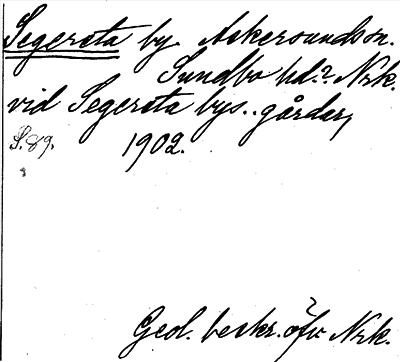 Segersta by. Askersundssn.
Sundbo hd.? Nrk.
vid Segersta bys.. gårdar,
S. 89. 1902.
Geol. beskr. öfv Nrk.